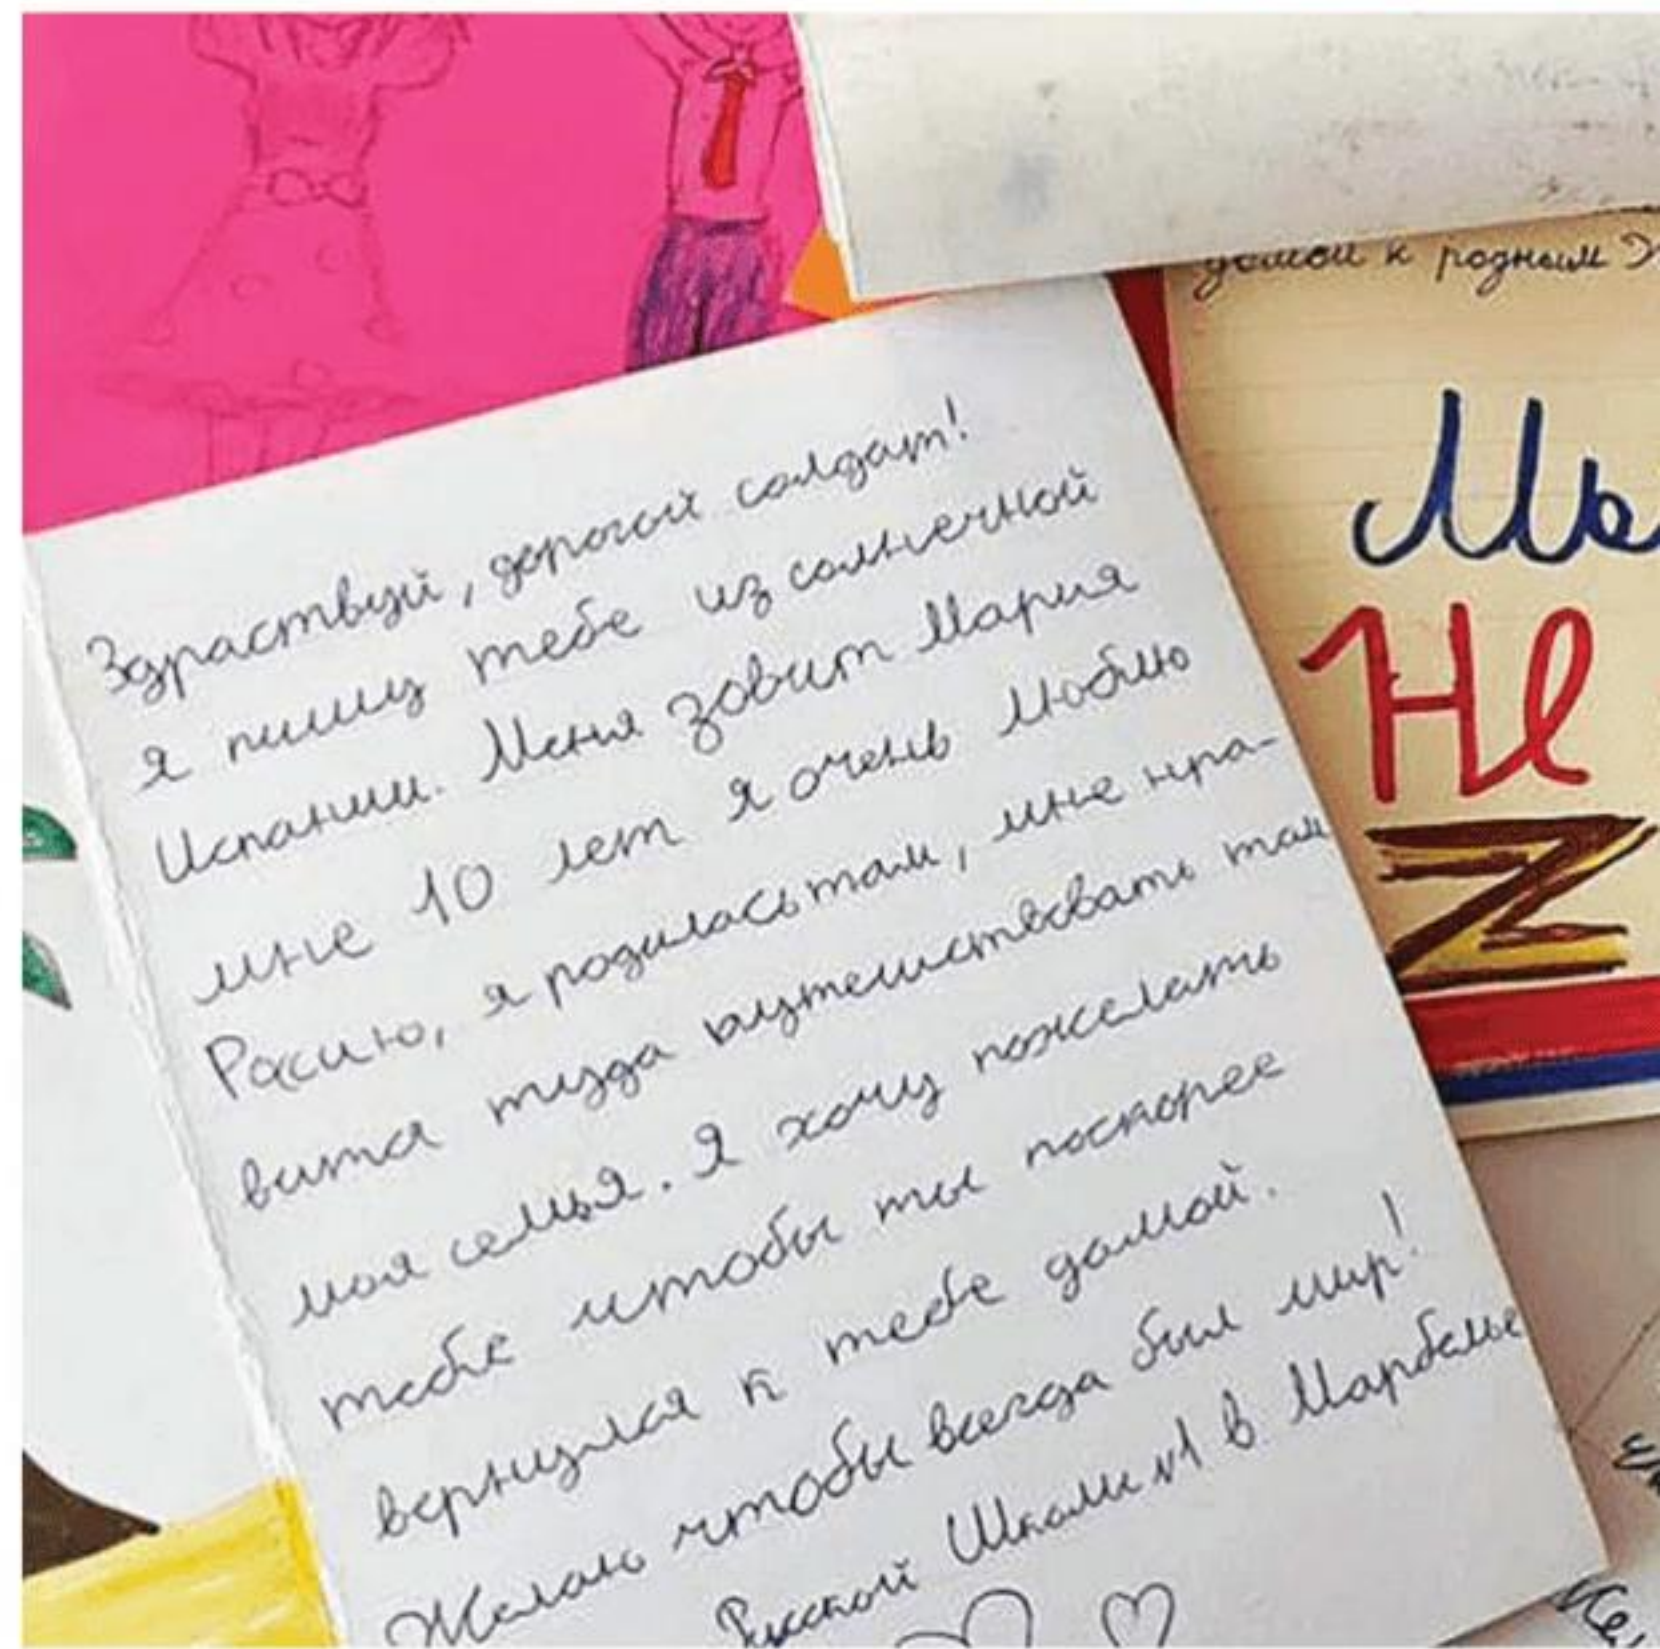 домой к родным
Здраствуй, дорогой солдат!
я пишу тебе из солнечной
Испании. Меня зовит Мария
мне 10 лет я очень люблю
Расию, я родилась там, мне нра-
вится тузда путешиствовать там
моя семья. Я хочу пожелать
тебе штобы ты поскорее
вернулся к тебе домой.
Желаю чтобы всегда был мир!
Русской Школы №1 в Марбелье
Не
Z